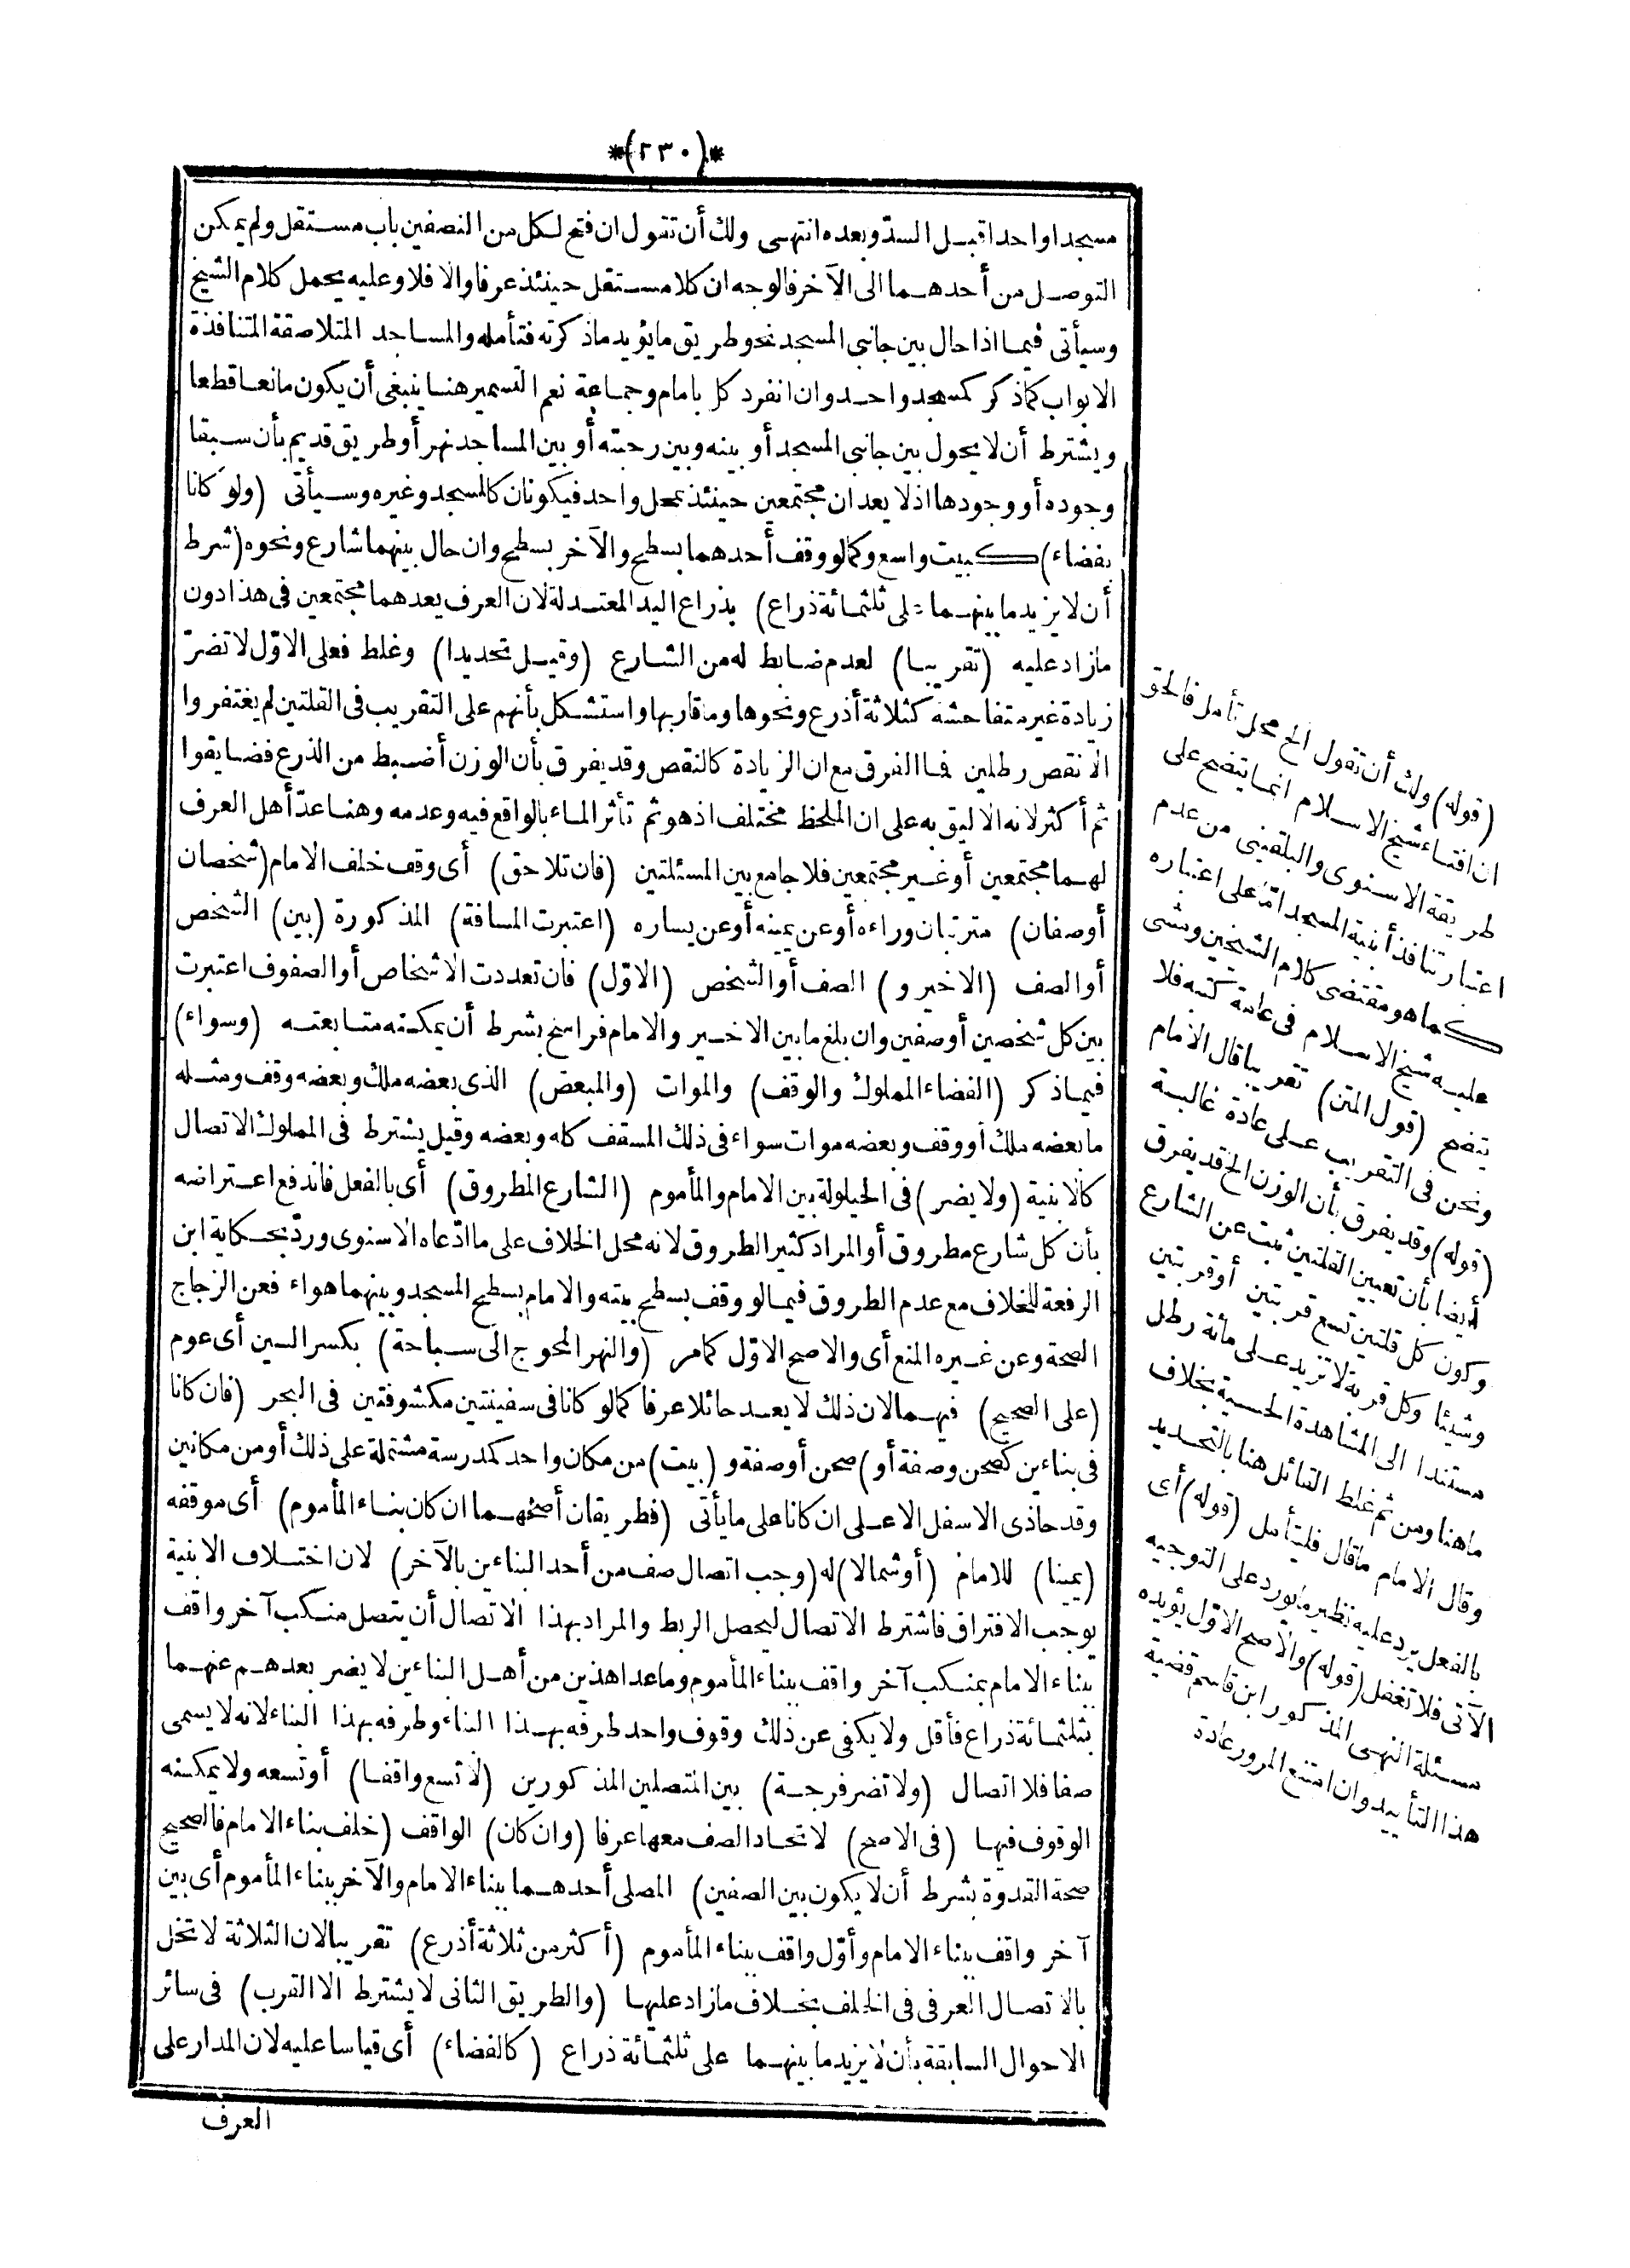 *(٢٣٠)*
مسجدا واحدا قبل السدّ وبعده انتهى ولك أن تقول ان فتح لكل من النصفين باب مستقل ولم يمكن
التوصل من أحدهما الى الآخر فالوجه ان كلا مستقل حينئذ عرفا والا فلا وعليه يحمل كلام الشيخ
وسيأتى فيما اذا حال بين جانبى المسجد نحو طريق ما يؤيد ما ذكرته فتأمله والمساجد المتلاصقة المتنافذة
الابواب كما ذكر كمسجد واحد وان انفرد كل بامام وجماعة نعم التسمير هنا ينبغى أن يكون مانعا قطعا
ويشترط أن لا يحول بين جانبى المسجد أو بينه وبين رحبته أو بين المساجد نهر أو طريق قديم بأن سبقا
وجوده أو وجودها اذ لا يعدان مجتمعين حينئذ بمحل واحد فيكونان كالمسجد وغيره وسيأتى (ولو كانا
بفضاء) كبيت واسع وكما لو وقف أحدهما بسطح والآخر بسطح وان حال بينهما شارع ونحوه (شرط
أن لا يزيد ما بينهما على ثلثمائة ذراع) بذراع اليد المعتدلة لان العرف يعدهما مجتمعين فى هذا دون
ما زاد عليه (تقريبا) لعدم ضابط له من الشارع (وقيل تحديدا) وغلط فعلى الاوّل لا تضرّ
زيادة غير متفاحشة كثلاثة أذرع ونحوها وما قاربها واستشكل بأنهم على التقريب فى القلتين لم يغتفروا
الا نقص رطلين فما الفرق مع ان الزيادة كالنقص وقد يفرق بأن الوزن أضبط من الذرع فضايقوا
ثم أكثر لانه الاليق به على ان الملحظ مختلف اذ هو ثم تأثر الماء بالواقع فيه وعدمه وهنا عدّ أهل العرف
لهما مجتمعين أو غير مجتمعين فلا جامع بين المسئلتين (فان تلاحق) أى وقف خلف الامام (شخصان
أو صفان) مترتبان وراءه أو عن يمينه أو عن يساره (اعتبرت المسافة) المذكورة (بين) الشخص
أو الصف (الاخير و) الصف أو الشخص (الاوّل) فان تعددت الاشخاص أو الصفوف اعتبرت
بين كل شخصين أو صفين وان بلغ ما بين الاخير والامام فراسخ بشرط أن يمكنه متابعته (وسواء)
فيما ذكر (الفضاء المملوك والوقف) والموات (والمبعض) الذى بعضه ملك وبعضه وقف ومثله
ما بعضه ملك أو وقف وبعضه موات سواء فى ذلك المسقف كله وبعضه وقيل يشترط فى المملوك الاتصال
كالابنية (ولا يضر) فى الحيلولة بين الامام والمأموم (الشارع المطروق) أى بالفعل فاندفع اعتراضه
بأن كل شارع مطروق أو المراد كثير الطروق لانه محل الخلاف على ما ادّعاه الاسنوى وردّ بحكاية ابن
الرفعة للخلاف مع عدم الطروق فيما لو وقف بسطح بيته والامام بسطح المسجد وبينهما هواء فعن الزجاج
الصحة وعن غيره المنع أى والاصح الاوّل كما مر (والنهر المحوج الى سباحة) بكسر السين أى عوم
(على الصحيح) فيهما لان ذلك لا يعد حائلا عرفا كما لو كانا فى سفينتين مكشوفتين فى البحر (فان كانا
فى بناءين كصحن وصفة أو) صحن أو صفة و (بيت) من مكان واحد كمدرسة مشتملة على ذلك أو من مكانين
وقد حاذى الاسفل الاعلى ان كانا على ما يأتى (فطريقان أصحهما ان كان بناء المأموم) أى موقفه
(يمينا) للامام (أو شمالا) له (وجب اتصال صف من أحد البناءين بالآخر) لان اختلاف الابنية
يوجب الافتراق فاشترط الاتصال ليحصل الربط والمراد بهذا الاتصال أن يتصل منكب آخر واقف
ببناء الامام بمنكب آخر واقف ببناء المأموم وما عدا هذين من أهل البناءين لا يضر بعدهم عنهما
بثلثمائة ذراع فأقل ولا يكفى عن ذلك وقوف واحد طرفه بهذا البناء وطرفه بهذا البناء لانه لا يسمى
صفا فلا اتصال (ولا تضر فرجة) بين المتصلين المذكورين (لا تسع واقفا) أو تسعه ولا يمكنه
الوقوف فيها (فى الاصح) لاتحاد الصف معها عرفا (وان كان) الواقف (خلف بناء الامام فالصحيح
صحة القدوة بشرط أن لا يكون بين الصفين) المصلى أحدهما ببناء الامام والآخر ببناء المأموم أى بين
آخر واقف ببناء الامام وأوّل واقف ببناء المأموم (أكثر من ثلاثة أذرع) تقريبا لان الثلاثة لا تخل
بالاتصال العرفى فى الخلف بخلاف ما زاد عليها (والطريق الثانى لا يشترط الا القرب) فى سائر
الاحوال السابقة بأن لا يزيد ما بينهما على ثلثمائة ذراع (كالفضاء) أى قياسا عليه لان المدار على
العرف
(قوله) ولك أن تقول الخ محل تأمل فالحق
ان افتاء شيخ الاسلام انما يتضح على
طريقة الاسنوى والبلقينى من عدم
اعتبار تنافذ أبنية المسجد امّا على اعتباره
كما هو مقتضى كلام الشيخين ومشى
عليه شيخ الاسلام فى عامة كتبه فلا
يتضح (قول المتن) تقريبا قال الامام
ونحن فى التقريب على عادة غالبة
(قوله) وقد يفرق بأن الوزن الخ قد يفرق
أيضا بأن تعيين القلتين ثبت عن الشارع
وكون كل قلتين تسع قربتين أو قربتين
وشيئا وكل قربة لا تزيد على مائة رطل
مستندا الى المشاهدة الحسية بخلاف
ما هنا ومن ثم غلط القائل هنا بالتحديد
وقال الامام ما قال فليتأمل (قوله) أى
بالفعل يرد عليه نظير ما يورد على التوجيه
الآتى فلا تغفل (قوله) والاصح الاوّل يؤيده
مسئلة النهى المذكور ابن قاسم قضية
هذا التأييد وان امتنع المرور عادة